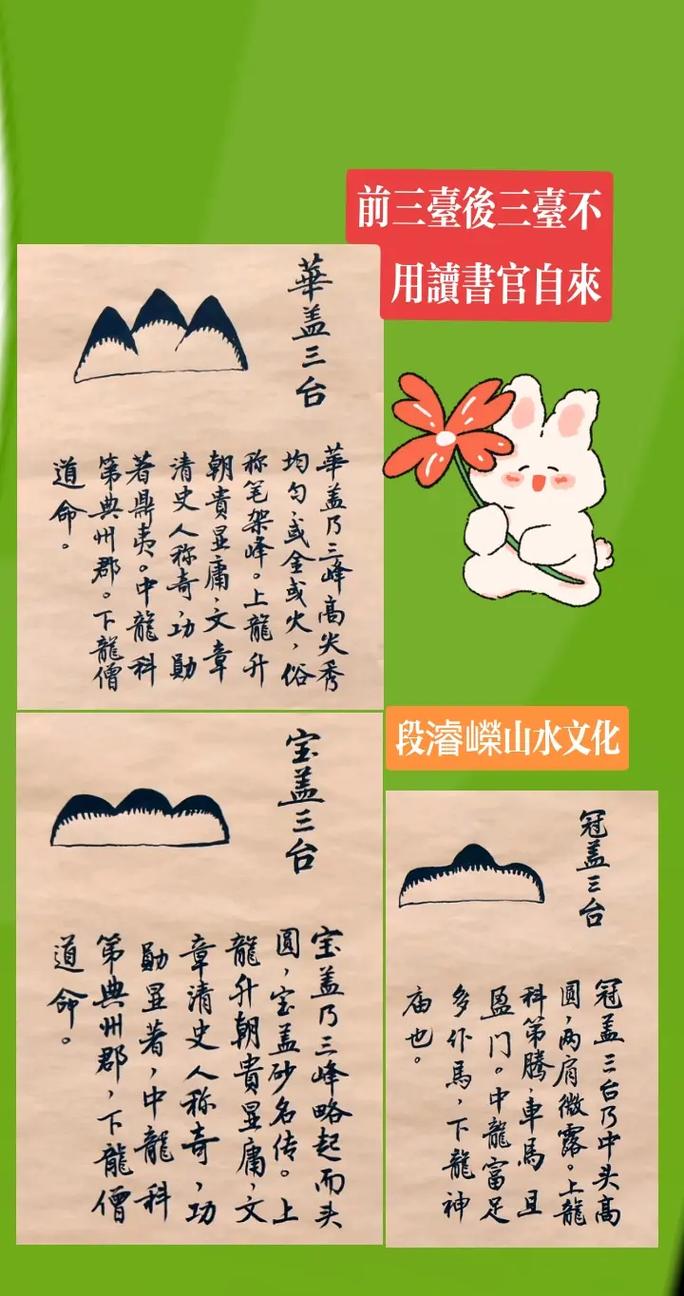 前三臺後三臺不
用讀書官自來
華盖三台
華盖乃三峰高尖秀
均匀,或金或火,俗
称笔架峰。上龍升
朝貴显庸,文章
清史人称奇,功勛
著鼎夷。中龍科
第典州郡。下龍僧
道命。
段濬嶸山水文化
宝盖三台
宝盖乃三峰略起而头
圆,宝盖砂名传。上
龍升朝貴显庸,文
章清史人称奇,功
勛显著,中龍科
第典州郡,下龍僧
道命。
冠盖三台
冠盖三台乃中头高
圆,两肩微露。上龍
科第腾,車馬且
盈门。中龍富足
多仆馬,下龍神
庙也。